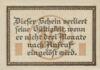 Dieser Schein verliert
seine Gültigkeit, wenn
er nicht drei Monate
nach Aufruf
eingelöst wird.